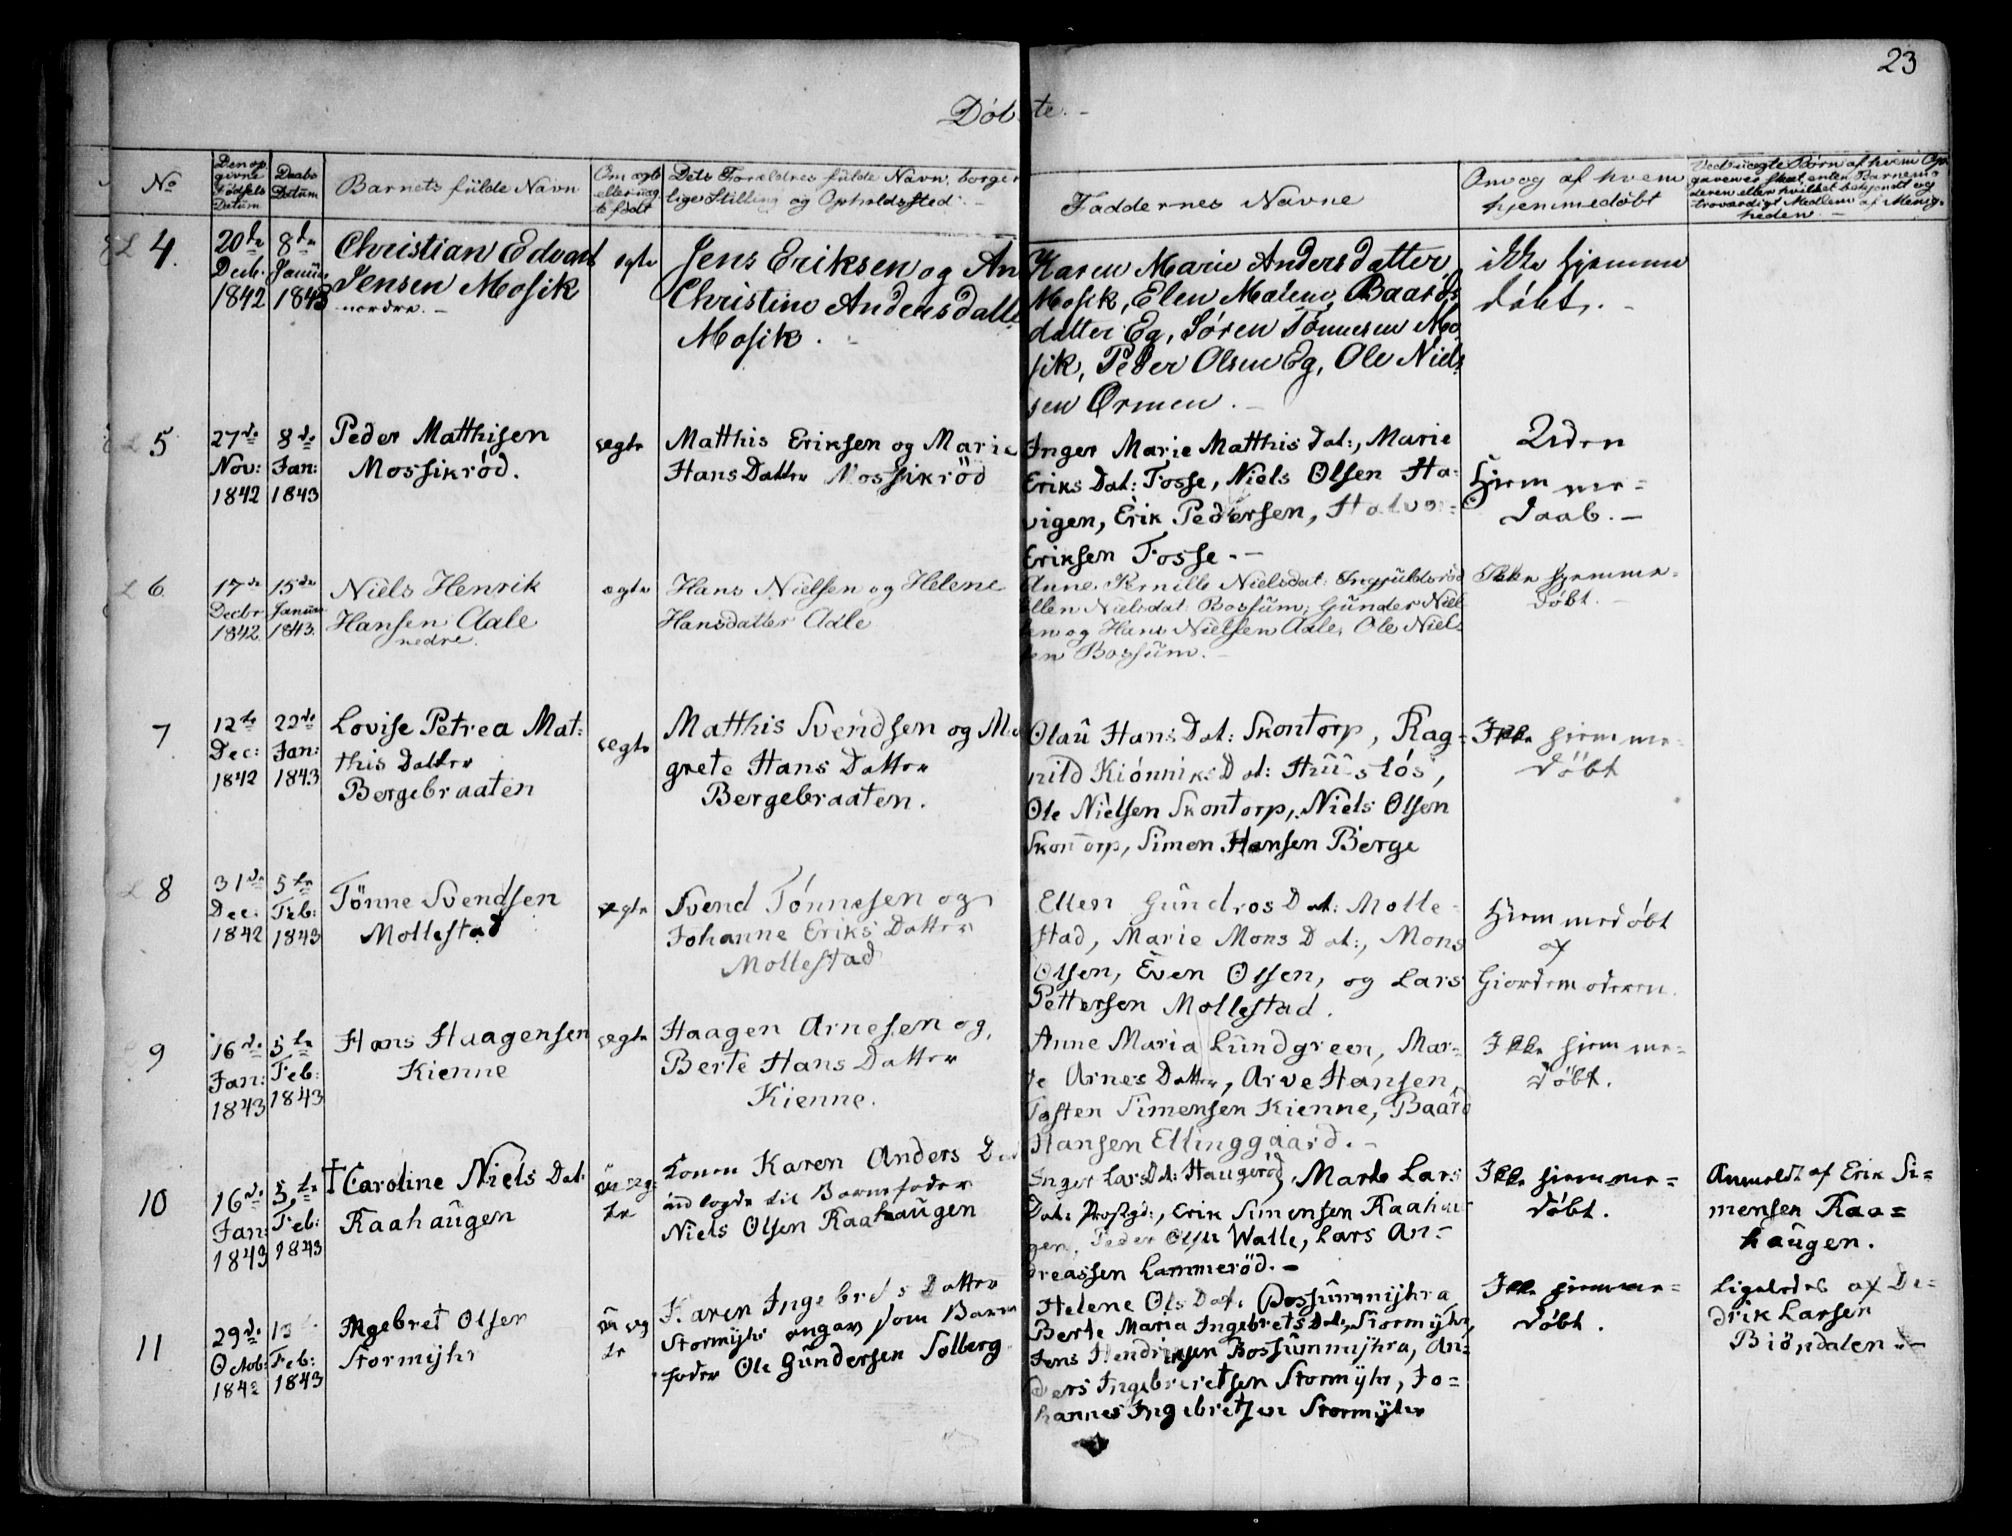 23
Døbte.
No
Den op
givne
Fødsels
Datum
Daabs
Datum
Barnets fulde Navn
Om ægte
eller uæg
te født
Dets Forældres fulde Navn, borger
lige Stilling og Opholdssted.
Faddernes Navne
Om og af hvem
hjemmedøbt
Ved uægte Børn af hvem Op
gaven er skeet, enten Barnemo
deren eller hvilket bekjendt og
troværdigt Medlem af Menig-
heden.
4.
20de
Decb.
1842
8de
Januar
1843
Christian Edvart
Jensen Mosik
nordre.
ægte
Jens Eriksen og An
Christine Andersdatte
Mosik.
Karen Marie Andersdatter
Mosik, Elen Malene Baards
datter Eg, Søren Tønnesen Mo
sik, Peder Olsen Eg, Ole Niel
sen Ørmen.
ikke hjemme
døbt.
5
27de
Nov:
1842
8de
Jan:
1843
Peder Matthisen
Mossikrød.
ægte
Matthis Eriksen og Marie
Hans Datter Mossikröd
Inger Marie Matthis Dat:, Marie
Eriks Dat: Fosse, Niels Olsen Ha-
vigen, Erik Pedersen, Halvor
Eriksen Fosse.
Uden
Hjemme=
daab.
6
17de
Decbr
1842.
15de
Januar
1843.
Niels Henrik
Hansen Aale
nedre.
ægte
Hans Nielsen og Helene
Hansdatter Aale
Anne Pernille Nielsdat: Ingvildsrød
Ellen Nielsdat: Bossum; Gunder Niel
sen og Hans Nielsen Aale, Ole Niels
sen Bossum.
Ikke hjemme-
døbt.
7
12te
Dec:
1842
22de
Jan:
1843
Lovise Petrea Mat:
this Datter
Bergebraaten
ægte
Matthis Svendsen og Ma
grete Hans Datter
Bergebraaten.
Olau Hans Dat: Skontorp, Rag-
nild Kiønniks Dat: Huusløs,
Ole Nielsen Skontorp, Niels Olsen
Skontorp, Simen Hansen Berge
Ikke hjemme-
døbt
8
31de
Dec:
1842
5te
Feb:
1843
Tönne Svendsen
Mollestad
ægte
Svend Tönnesen og
Johanne Eriks Datter
Mollestad
Ellen Gundros Dat: Molle-
stad, Marie Mons Dat:, Mons
Olsen, Even Olsen, og Lars
Pettersen Mollestad.
Hjemmedøbt
af
Giordemoderen.
9
16de
Jan:
1843
5te
Feb:
1843
Hans Haagensen
Kienne
ægte
Haagen Arnesen og
Berte Hans Datter
Kienne.
Anne Maria Lundgreen, Mar-
te Arnes Datter, Arve Hansen,
Tosten Simensen Kienne, Baard
Hansen Ellinggaard.
Ikke hjemme-
døbt.
10
16de
Jan:
1843
5te
Feb:
1843
† Caroline Niels Dat:
Raahaugen
uæg:
te
Konen Karen Anders Dat
udlagde til Barnefader
Niels Olsen Raahaugen
Inger Lars Dat: Haugeröd, Marte Lars
Dat: Prestgd:, Erik Simensen Raahau
gen, Peder Olsen Walle, Lars An=
dreassen Lammeröd.
Ikke hjemme=
døbt.
Anmeldt af Erik Si=
mensen Raa=
haugen.
11
29de
Octob:
1842
13
Feb:
1843
Ingebret Olsen
Stormyhr
uæg
te
Karen Ingebrets Datter
Stormyhr angav som Barne
fader Ole Gundersen Solberg
Helene Ols Dat: Bossummyhra,
Berte Maria Ingebrets Dat:, Stormyhr,
Jens Hendriksen Bossummyhra, An=
ders Ingebretsen Stormyhr, Jo=
hannes Ingebretsen Stormyhr
Ikke hjemme=
døbt.
Ligeledes af De=
drik Larsen
Biöndalen.